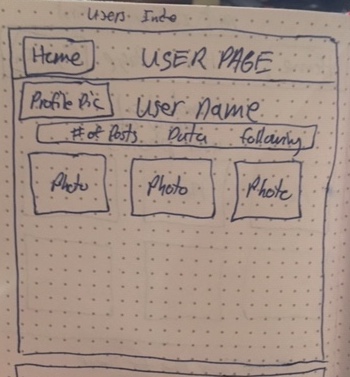 Users Info
Home USER PAGE
Profile Pic User Name
# of Posts Data following
Photo Photo Photo